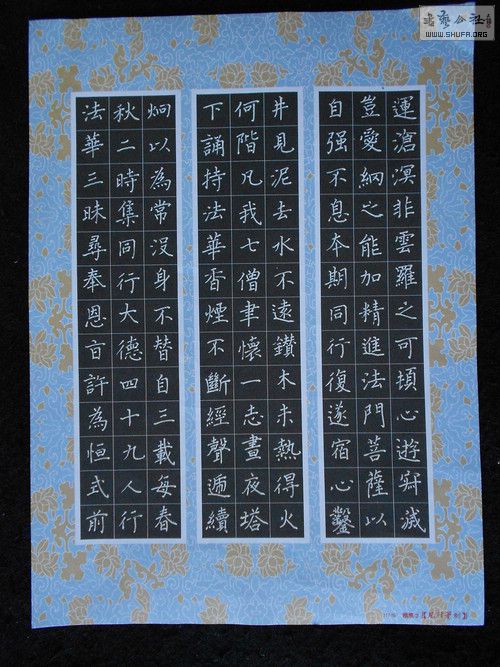 運滄溟非雲羅之可頓心遊寂滅
豈愛納之能加精進法門菩薩以
自强不息本期同行復遂宿心鑿
井見泥去水不遠鑽木未熱得火
何階凡我七僧聿懷一志晝夜塔
下誦持法華香煙不斷經聲遞續
炯以為常沒身不替自三載每春
秋二時集同行大德四十九人行
法華三昧尋奉恩旨許為恒式前
書藝公社
WWW.SHUFA.ORG